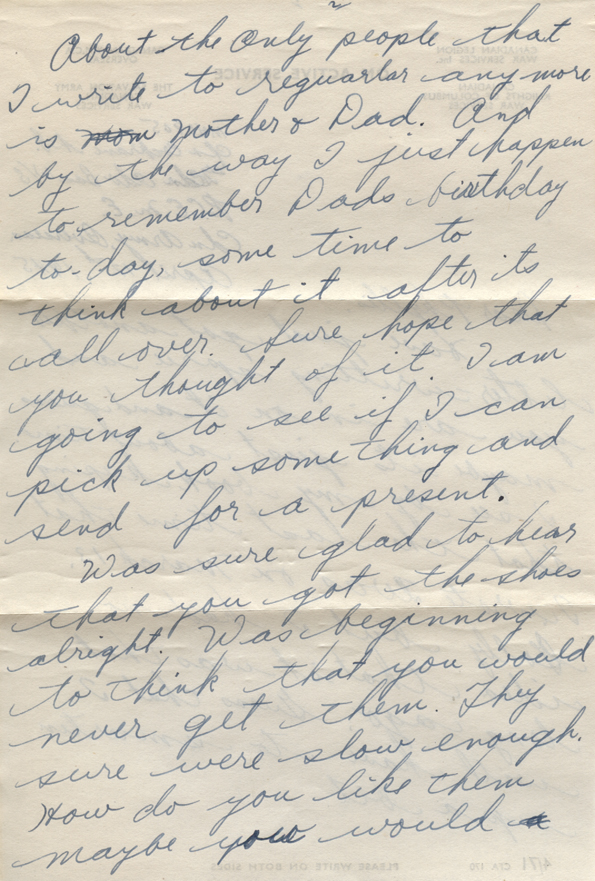 2
About the Only people that
I write to reguarlar any more
is mom mother & Dad. And
by the way I just happen
to remember Dads birthday
to-day, some time to
think about it after its
all over. Sure hope that
you thought of it. I am
going to see if I can
pick up something and
send for a present.
Was sure glad to hear
that you got the shoes
alright. Was beginning
to think that you would
never get them. They
sure were slow enough.
How do you like them
maybe you would a
4/71 CFA 170 PLEASE WRITE ON BOTH SIDES